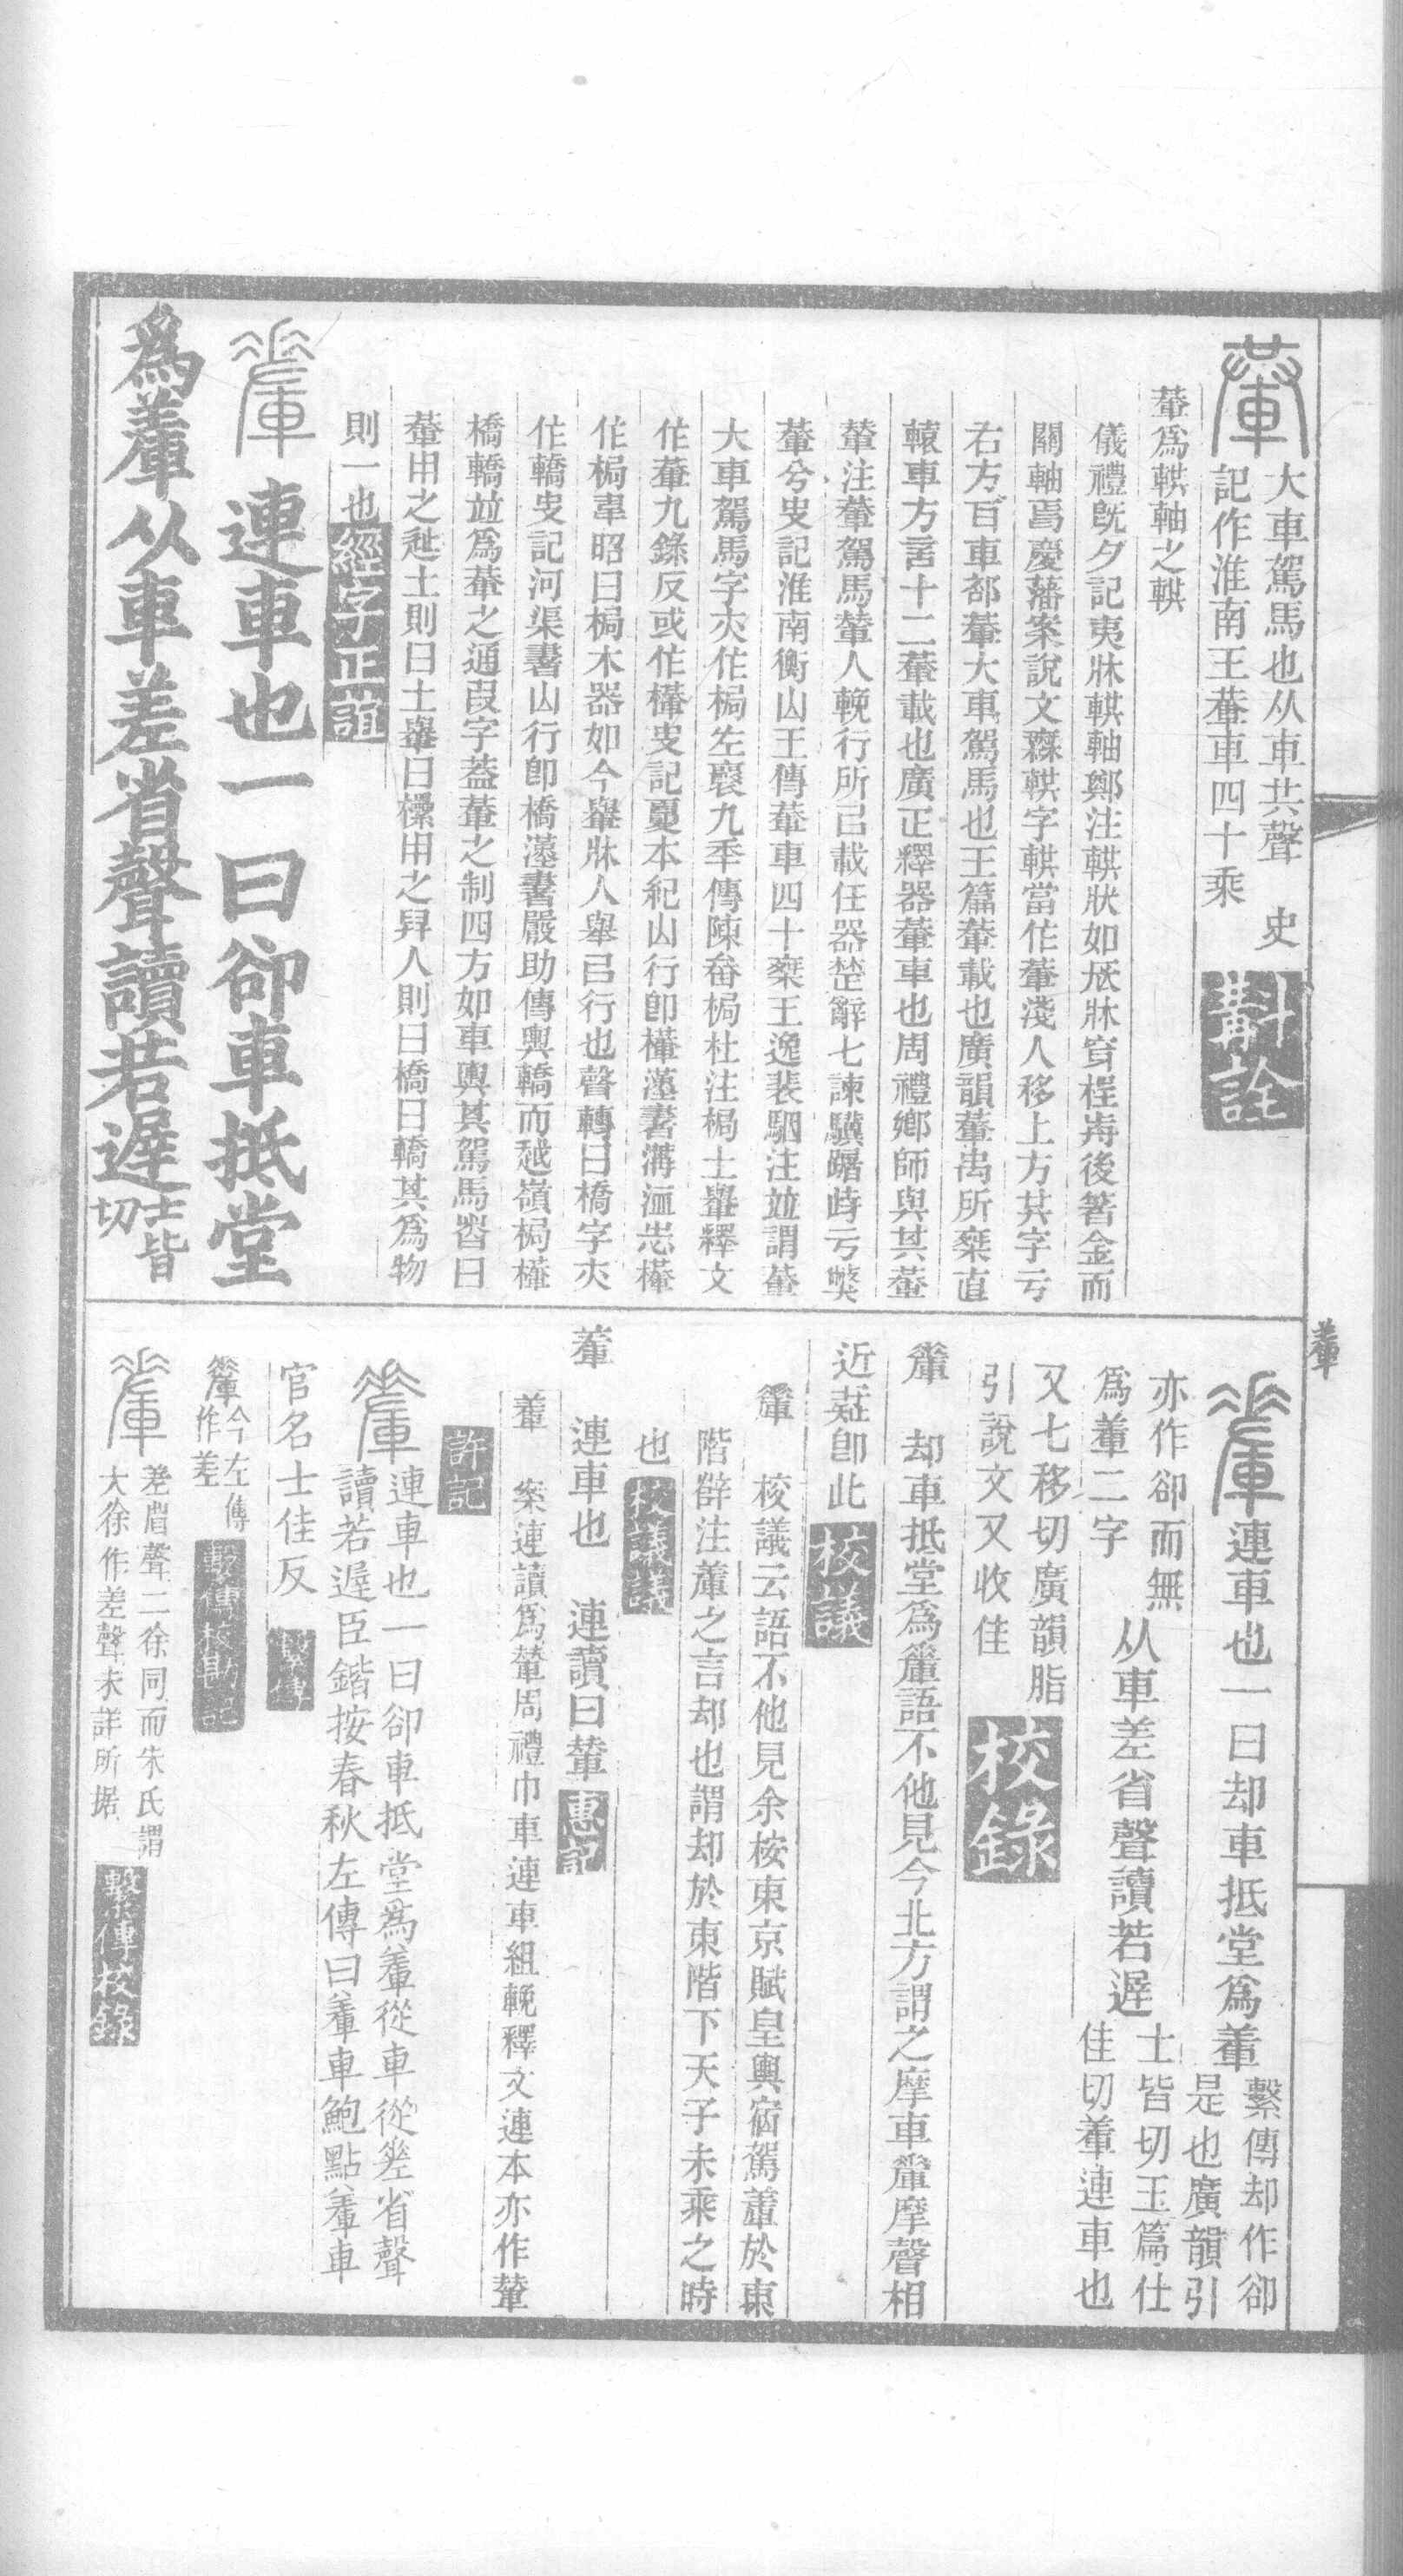 大車駕馬也从車共聲 史
記作淮南王輂車四十乘 斠詮
輂爲輁軸之輁
儀禮旣夕記夷牀輁軸鄭注輁狀如牀穿桯前後著金而
關軸焉慶藩案說文無輁字輁當作輂淺人移上方其字于
右方百車部輂大車駕馬也玉篇輂載也廣韻輂禹所乘直
轅車方言十二輂載也廣疋釋器輂車也周禮鄉師與其輂
輦注輂駕馬輦人輓行所㠯載任器楚辭七諫驥躊躇于弊
輂兮史記淮南衡山王傳輂車四十乘王逸裴駰注並謂輂
大車駕馬字亦作梮左襄九年傳陳畚梮杜注梮土轝釋文
作輂九錄反或作檋史記夏本紀山行卽檋漢書溝洫志檋
作梮韋昭曰梮木器如今轝牀人舉㠯行也聲轉曰橋字亦
作轎史記河渠書山行卽橋漢書嚴助傳輿轎而越嶺梮檋
橋轎並爲輂之通叚字蓋輂之制四方如車輿其駕馬者曰
輂用之徙土則曰土轝曰欙用之舁人則曰橋曰轎其爲物
則一也 經字正誼
連車也一曰卻車抵堂
爲䡨从車差省聲讀若遲 士皆切
䡨
連車也一曰却車抵堂爲䡨 繫傳却作卻
是也廣韻引
亦作卻而無
爲䡨二字 从車差省聲讀若遲 士皆切玉篇仕
佳切䡨連車也
又七移切廣韻脂
引說文又收佳 校錄
䡨 却車抵堂爲䡨語不他見今北方謂之摩車䡨摩聲相
近疑卽此 校議
䡨 校議云語不他見余按東京賦皇輿宿駕䡨於東
階辥注䡨之言却也謂却於東階下天子未乘之時
也 校議議
䡨 連車也 連讀曰輦 惠記
䡨 案連讀爲輦周禮巾車連車組輓釋文連本亦作輦
許記
連車也一曰卻車抵堂爲䡨從車從差省聲
讀若遲臣鍇按春秋左傳曰䡨車鮑點䡨車
官名士佳反 繫傳
䡨 今左傳
作差 繫傳校勘記
差省聲二徐同而朱氏謂
大徐作差聲未詳所据 繫傳校錄